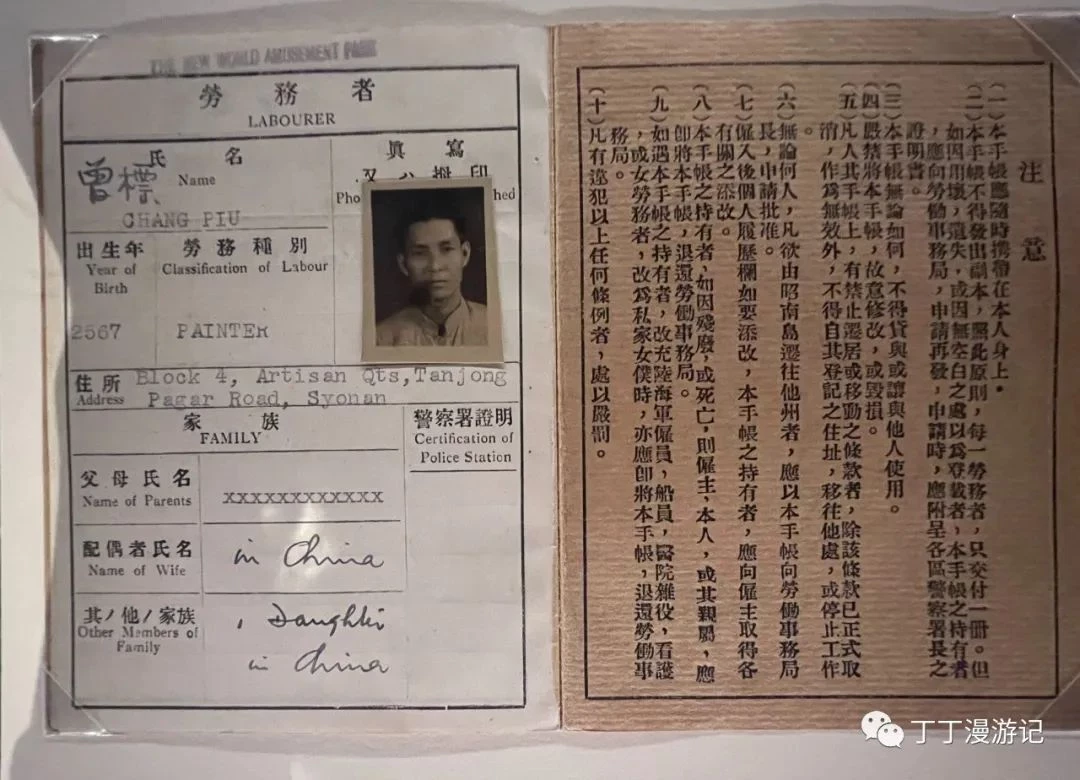 THE NEW WORLD AMUSEMENT PARK
勞務者
LABOURER
氏名
Name
曾標
CHANG PIU
眞寫
Pho
hed
出生年
Year of
Birth
2567
勞務種別
Classification of Labour
PAINTER
住所
Address
Block 4, Artisan Qts, Tanjong
Pagar Road, Syonan
家族
FAMILY
警察署證明
Certification of
Police Station
父母氏名
Name of Parents
xxxxxxxxxxxx
配偶者氏名
Name of Wife
in China
其/他/家族
Other Members of
Family
1 Daughter
in China
注意
(一)本手帳應隨時携帶在本人身上。
(二)本手帳不得發出副本，照此原則，每一勞務者，只交付一冊。但
如因用壞，遺失，或因無空白之處以爲登載者，本手帳之持有者
，應向勞働事務局，申請再發，申請時，應附呈各區警察署長之
證明書。
(三)本手帳無論如何，不得貸與或讓與他人使用。
(四)嚴禁將本手帳，故意修改，或毀損。
(五)凡人其手帳上，有禁止遷居或移動之條款者，除該條款已正式取
消，作爲無效外，不得自其登記之住址，移往他處，或停止工作
。
(六)無論何人，凡欲由昭南島遷往他州者，應以本手帳向勞働事務局
長，申請批准。
(七)僱入後個人履歷欄如要添改，本手帳之持有者，應向僱主取得各
有關之添改。
(八)本手帳之持有者，如因殘廢，或死亡，則僱主，本人，或其親屬，應
卽將本手帳，退還勞働事務局。
(九)如遇本手帳之持有者，改充陸海軍僱員，船員，醫院雜役，看護
，或女勞務者，改爲私家女僕時，亦應卽將本手帳，退還勞働事
務局。
(十)凡有違犯以上任何條例者，處以嚴罰。
丁丁漫游记